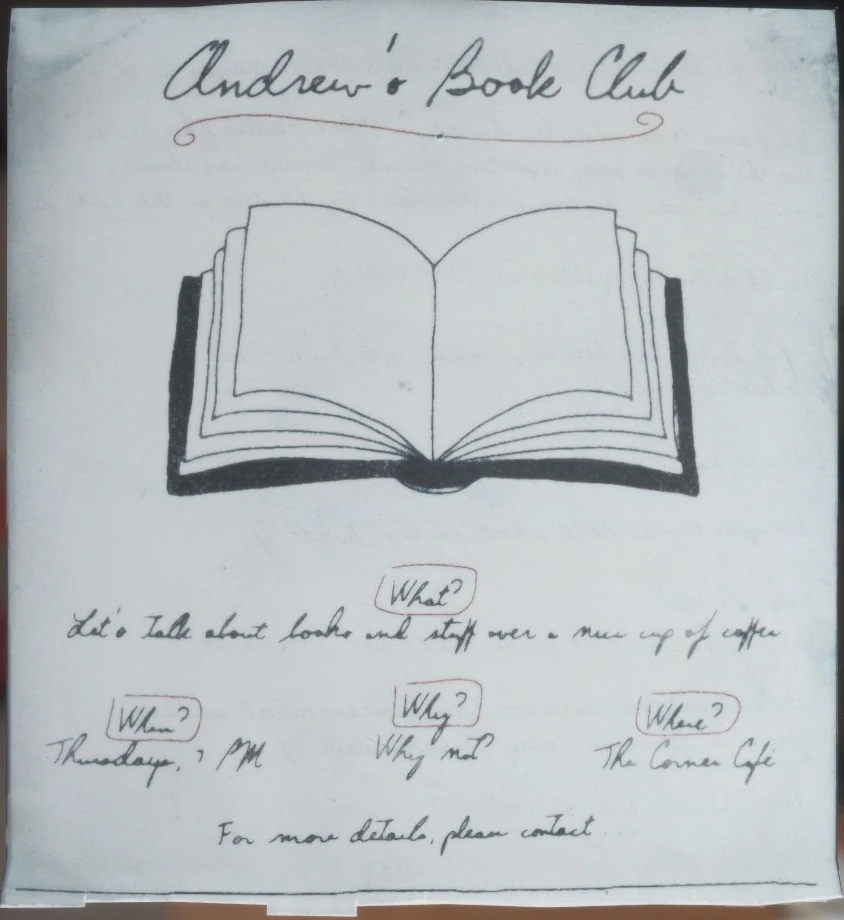 Andrew's Book Club
What?
Let's talk about books and stuff over a nice cup of coffee
When?
Why?
Where?
Thursdays, 7 PM
Why not?
The Corner Café
For more details, please contact